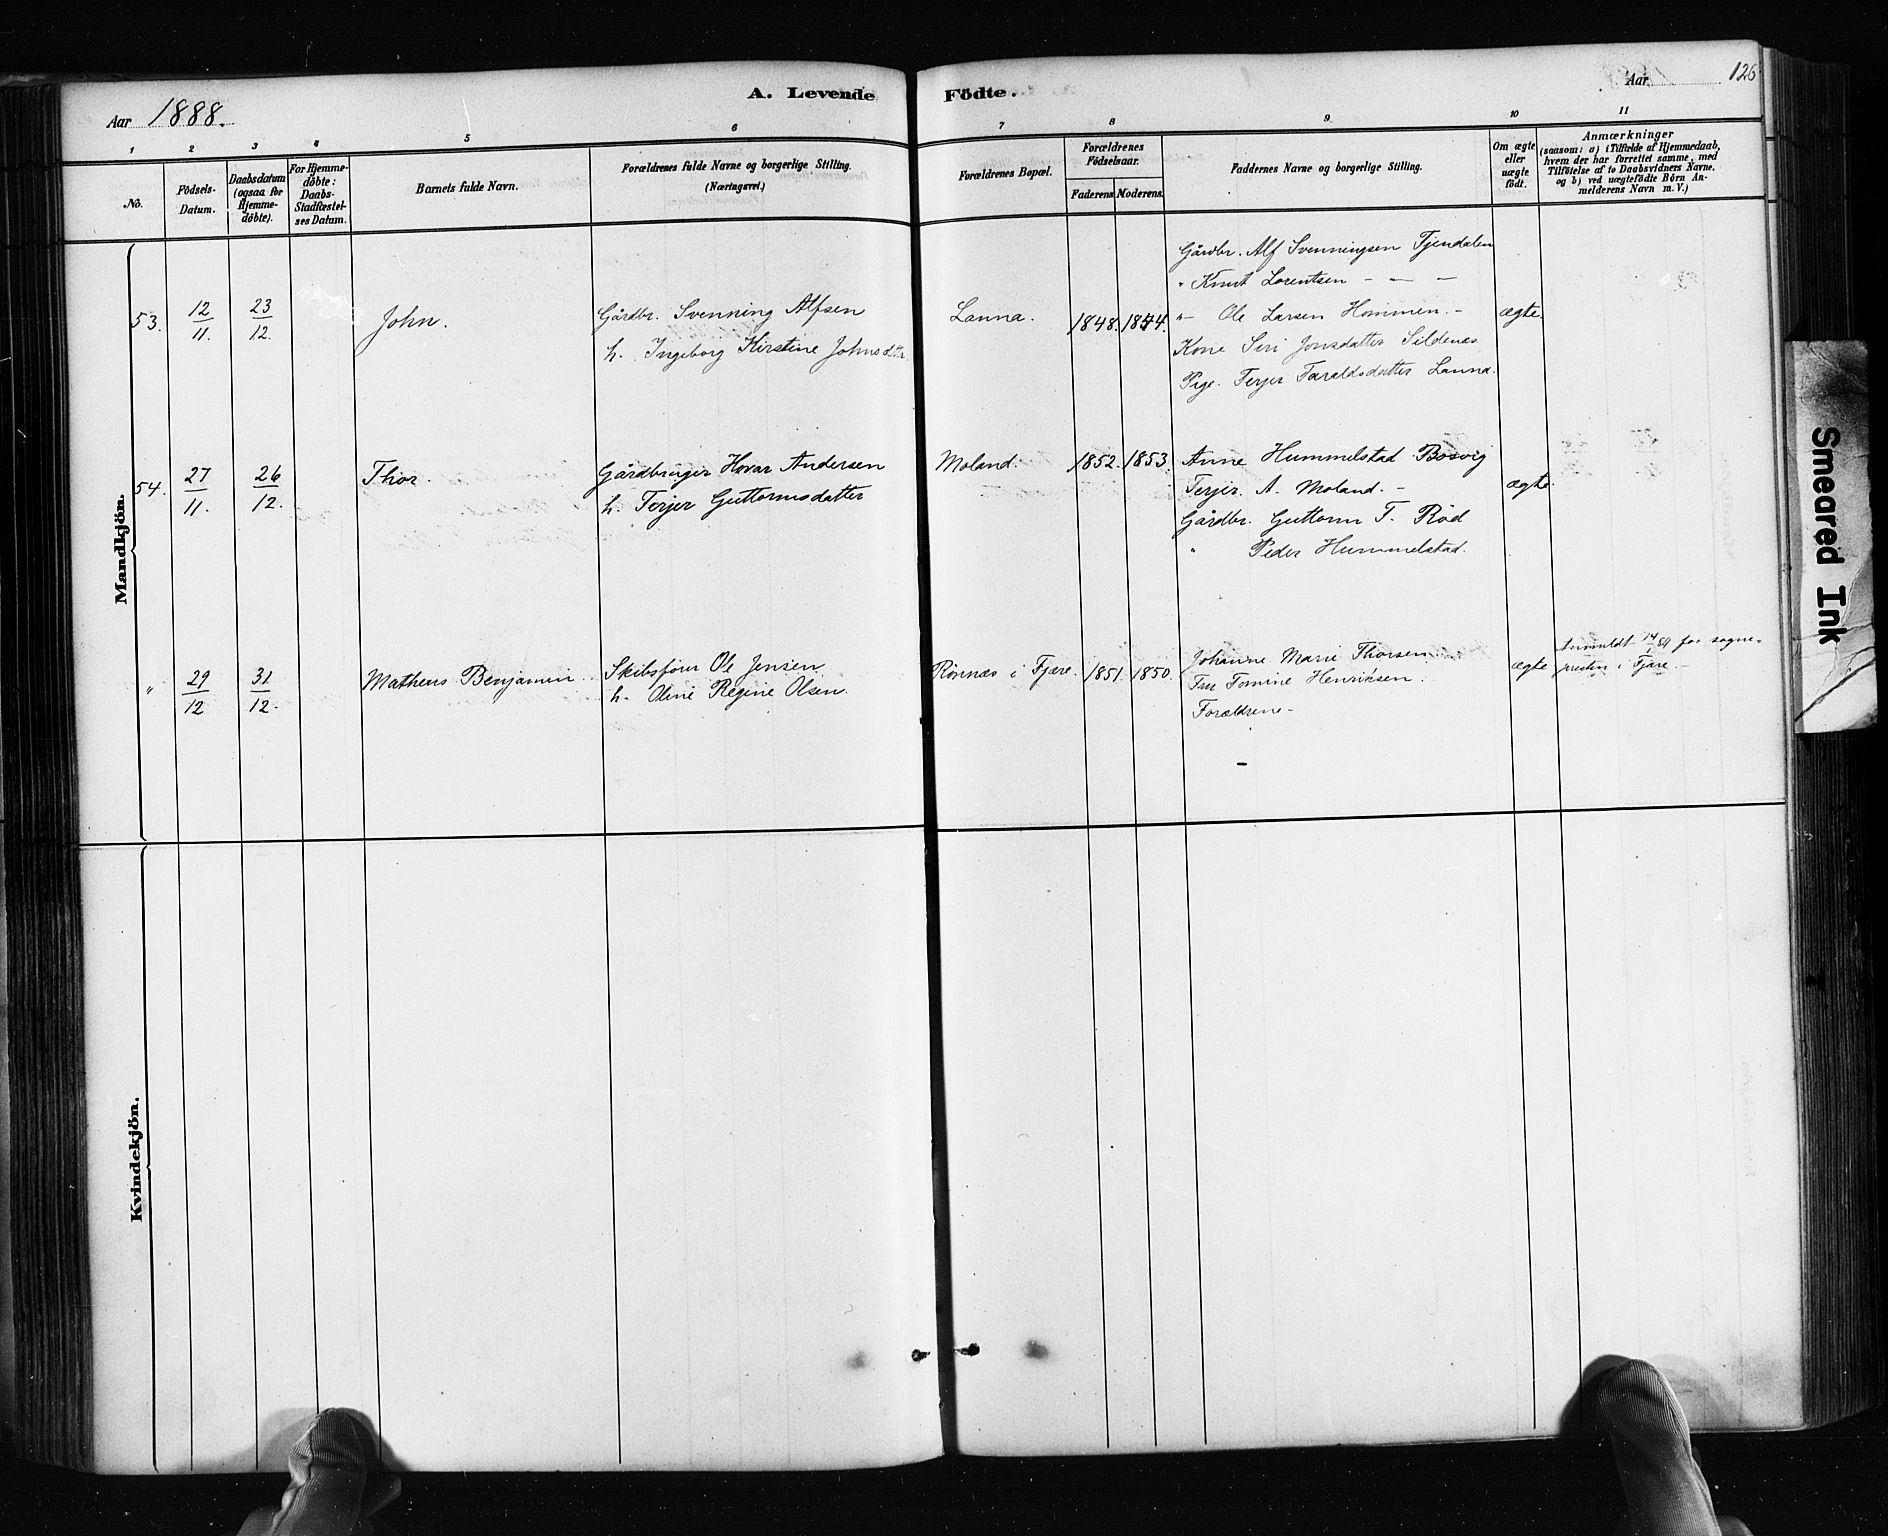 A. Levende Födte.
Aar 1888.
Aar
126
1 2 3 4 5 6 7 8 9 10 11
No.
Födsels-
Datum.
Daabsdatum
(ogsaa for
Hjemme-
döbte).
For Hjemme-
döbte:
Daabs-
Stadfæstel-
ses Datum.
Barnets fulde Navn.
Forældrenes fulde Navne og borgerlige Stilling.
(Næringsvei.)
Forældrenes Bopæl.
Forældrenes
Födselsaar.
Faderens. Moderens.
Faddernes Navne og borgerlige Stilling.
Om ægte
eller
uægte
födt.
Anmærkninger
(saasom: a) i Tilfælde af Hjemmedaab,
hvem der har forrettet samme, med
Tilföielse af to Daabsvidners Navne,
og b) ved uægtefödte Börn An-
melderens Navn m. V.)
Mandkjön.
53.
12/11.
23/12.
John.
Gårdbr. Svenning Alfsen
h. Ingeborg Kirstine Johnsdttr.
Lanna.
1848. 1854.
Gårdbr. Alf Svenningsen Tjendalen
" Knut Lorentsen - - -
"- Ole Larsen Hommen. -
Kone Siri Jonsdatter Sildenæs
Pige. Terjer Taraldsdatter Lanna.
ægte.
54.
27/11.
26/12.
Thor.
Gårdbruger Hovar Andersen
h. Terjer Guttormsdatter
Moland.
1852. 1853.
Anne Hummelstad Bosvig
Terjer. A. Moland. -
Gårdbr. Guttorm T. Röd
" Peder Hummelstad.
ægte.
"
29/12
31/12.
Matheus Benjamin.
Skibsförer Ole Jensen
h. Oline Regine Olsen.
Rönnæs i Fjære.
1851. 1850.
Johanne Marie Thorsen
Fru Tomine Henriksen.
Forældrene -
-
ægte
Anmeldt 14/1 89 for sogne-
presten i Fjære. -
Kvindekjön.
Smeared Ink